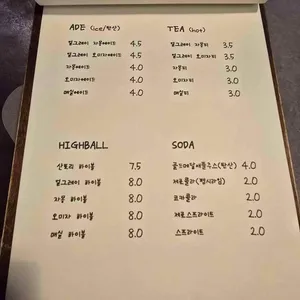 ADE (ice/탄산)
얼그레이 자몽에이드 4.5
얼그레이 오미자에이드 4.5
자몽에이드 4.0
오미자에이드 4.0
매실에이드 4.0
TEA (hot)
얼그레이 자몽티 3.5
얼그레이 오미자티 3.5
자몽티 3.0
오미자티 3.0
매실티 3.0
HIGHBALL
산토리 하이볼 7.5
얼그레이 하이볼 8.0
자몽 하이볼 8.0
오미자 하이볼 8.0
매실 하이볼 8.0
SODA
골드메달애플주스(탄산) 4.0
제로콜라(펩시라임) 2.0
코카콜라 2.0
제로스프라이트 2.0
스프라이트 2.0